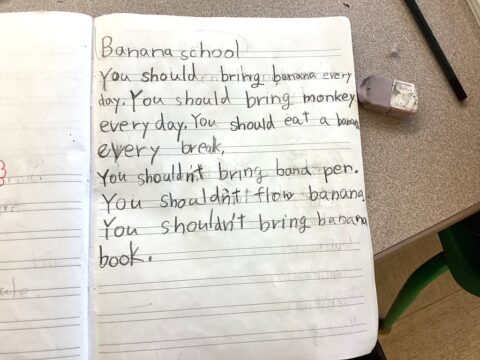 Banana school
You should bring banana every
day. You should bring monkey
every day. You should eat a banana
every break.
You shouldn't bring band pen.
You shouldn't flow banana.
You shouldn't bring banana
book.